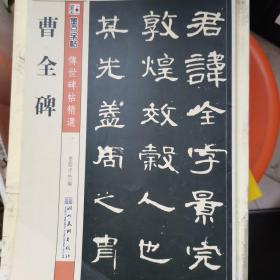 君諱全字景完
敦煌效穀人也
其先蓋周之冑
墨点字帖
傳世碑帖精選
曹全碑